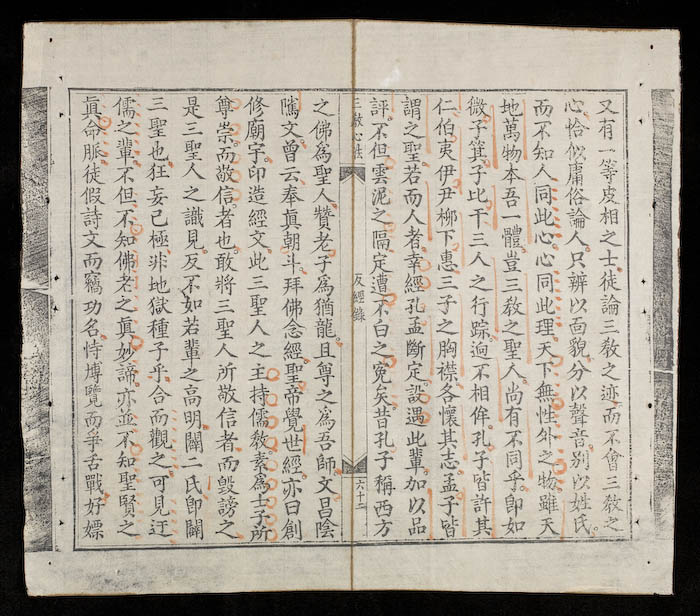 又有一等皮相之士徒論三敎之迹而不會三敎之
心恰似庸俗論人只辨以面貌分以聲音別以姓氏
而不知人同此心心同此理天下無性外之物雖天
地萬物本吾一體豈三敎之聖人尚有不同乎卽如
微子箕子比干三人之行踪逈不相侔孔子皆許其
仁伯夷伊尹柳下惠三子之胸襟各懷其志孟子皆
謂之聖若而人者幸經孔孟斷定設遇此輩加以品
評不但雲泥之隔定遭不白之寃矣昔孔子稱西方
三敎心法
反經錄
六十二
之佛爲聖人贊老子爲猶龍且尊之爲吾師文昌陰
隲文曾云奉眞朝斗拜佛念經聖帝覺世經亦曰創
修廟宇印造經文此三聖人之主持儒敎素爲士子所
尊崇而敬信者也敢將三聖人所敬信者而毀謗之
是三聖人之識見反不如若輩之高明闢二氏卽闢
三聖也狂妄已極非地獄種子乎合而觀之可見迂
儒之輩不但不知佛老之眞妙諦亦並不知聖賢之
眞命脈徒假詩文而竊功名恃博覽而爭舌戰好嫖